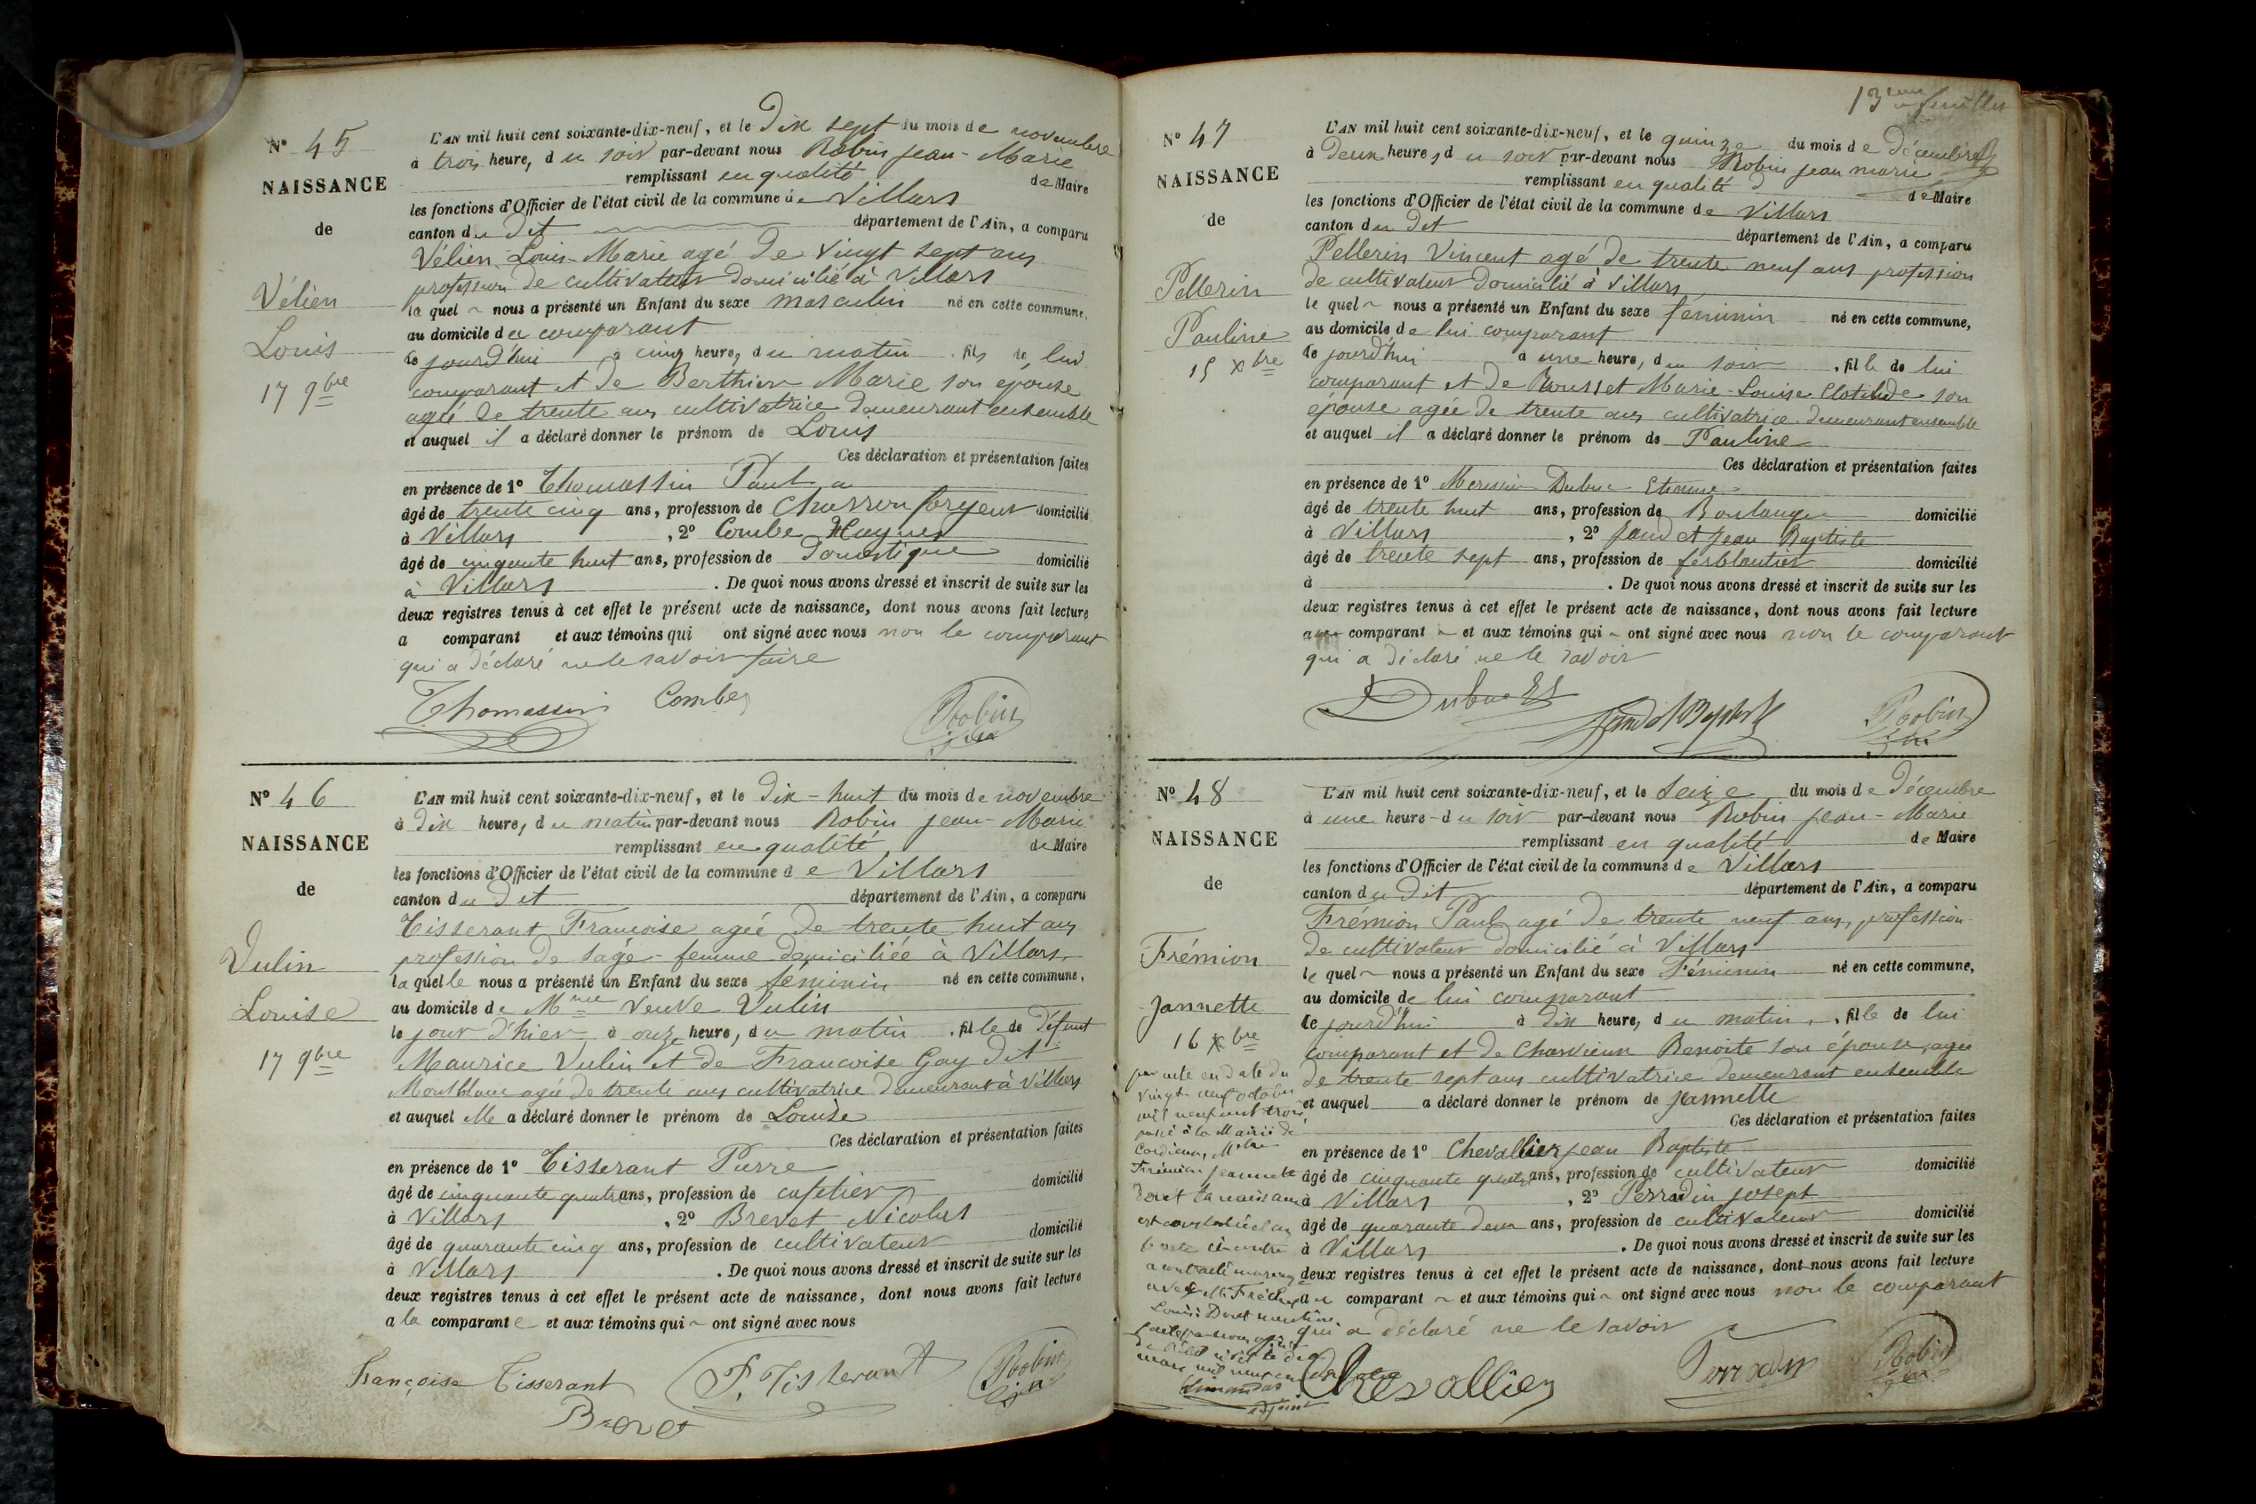 N° 45
NAISSANCE
de
Vélien
Louis
17 9bre
L'AN mil huit cent soixante-dix-neuf, et le Dix sept du mois de novembre
à trois heure, du soir par-devant nous Robin Jean-Marie
remplissant en qualité de Maire
les fonctions d'Officier de l'état civil de la commune de Villars
canton du dit département de l'Ain, a comparu
Vélien Louis-Marie agé de vingt sept ans
profession de cultivateur domicilié à Villars
le quel nous a présenté un Enfant du sexe masculin né en cette commune,
au domicile du comparant
le jourd'hui à cinq heure, du matin, fils de lui
comparant et de Berthier Marie son épouse
agée de trente ans cultivatrice demeurant ensemble
et auquel il a déclaré donner le prénom de Louis
Ces déclaration et présentation faites
en présence de 1° Thomassin Paul
âgé de trente cinq ans, profession de Charron forgeur domicilié
à Villars, 2° Combe
âgé de cinquante huit ans, profession de Domestique domicilié
à Villars. De quoi nous avons dressé et inscrit de suite sur les
deux registres tenus à cet effet le présent acte de naissance, dont nous avons fait lecture
a comparant et aux témoins qui ont signé avec nous non le comparant
qui a déclaré ne le savoir faire
Thomassin Combe Robin
N° 46
NAISSANCE
de
Vulin
Louise
17 9bre
L'AN mil huit cent soixante-dix-neuf, et le dix-huit du mois de novembre
à dix heure, du matin par-devant nous Robin Jean-Marie
remplissant en qualité de Maire
les fonctions d'Officier de l'état civil de la commune de Villars
canton du dit département de l'Ain, a comparu
Tisserant Francoise agée de trente huit ans
profession de sage-femme domiciliée à Villars
la quelle nous a présenté un Enfant du sexe féminin né en cette commune,
au domicile de Mme veuve Vulin
le jour d'hier à onze heure, du matin, fille de Défunt
Maurice Vulin et de Francoise Gay dit
Montblanc agée de trente ans cultivatrice demeurant à Villars
et auquel elle a déclaré donner le prénom de Louise
Ces déclaration et présentation faites
en présence de 1° Tisserant Pierre
âgé de cinquante quatre ans, profession de cafetier domicilié
à Villars, 2° Brevet Nicolas
âgé de quarante cinq ans, profession de cultivateur domicilié
à Villars. De quoi nous avons dressé et inscrit de suite sur les
deux registres tenus à cet effet le présent acte de naissance, dont nous avons fait lecture
a la comparante et aux témoins qui ont signé avec nous
Françoise Tisserant P. Tisserant Robin
Brevet
13eme feuillet
N° 47
NAISSANCE
de
Pellerin
Pauline
15 xbre
L'AN mil huit cent soixante-dix-neuf, et le quinze du mois de Décembre
à Deux heures, du soir par-devant nous Robin jean marie
remplissant en qualité de Maire
les fonctions d'Officier de l'état civil de la commune de Villars
canton du dit département de l'Ain, a comparu
Pellerin Vincent agé de trente neuf ans profession
de cultivateur domicilié à Villars
le quel nous a présenté un Enfant du sexe féminin né en cette commune,
au domicile de lui comparant
le jourd'hui à une heure, du soir, fille de lui
comparant et de Rousset Marie-Louise Clotilde son
épouse agée de trente ans cultivatrice demeurant ensemble
et auquel il a déclaré donner le prénom de Pauline
Ces déclaration et présentation faites
en présence de 1° Dubuc Etienne
âgé de trente huit ans, profession de Boulanger domicilié
à Villars, 2° Jandet Jean Baptiste
âgé de trente sept ans, profession de ferblantier domicilié
à . De quoi nous avons dressé et inscrit de suite sur les
deux registres tenus à cet effet le présent acte de naissance, dont nous avons fait lecture
au comparant et aux témoins qui ont signé avec nous non le comparant
qui a déclaré ne le savoir
Dubuc Et Jandet Baptiste Robin
N° 48
NAISSANCE
de
Frémion
Jannette
16 xbre
par acte en date du
vingt neuf octobre
mil neuf cent trois
passé à la Mairie de
Cordieux, Melle
Frémion Jeannette
dont la naissance
est constatée
l'acte ci-contre
a contracté mariage
avec
Louis Dont mention
adjoint
L'AN mil huit cent soixante-dix-neuf, et le seize du mois de Décembre
à une heure du soir par-devant nous Robin Jean-Marie
remplissant en qualité de Maire
les fonctions d'Officier de l'état civil de la commune de Villars
canton du dit département de l'Ain, a comparu
Frémion Paul agé de trente neuf ans, profession
de cultivateur domicilié à Villars
le quel nous a présenté un Enfant du sexe Féminin né en cette commune,
au domicile de lui comparant
le jourd'hui à dix heure, du matin, fille de lui
comparant et de Charvieux Benoite son épouse, agée
de trente sept ans cultivatrice demeurant ensemble
et auquel a déclaré donner le prénom de Jannette
Ces déclaration et présentation faites
en présence de 1° Chevallier Jean Baptiste
âgé de cinquante quatre ans, profession de cultivateur domicilié
à Villars, 2° Perradin joseph
âgé de quarante deux ans, profession de cultivateur domicilié
à Villars. De quoi nous avons dressé et inscrit de suite sur les
deux registres tenus à cet effet le présent acte de naissance, dont nous avons fait lecture
au comparant et aux témoins qui ont signé avec nous non le comparant
qui a déclaré ne le savoir
Chevallier Perradin Robin